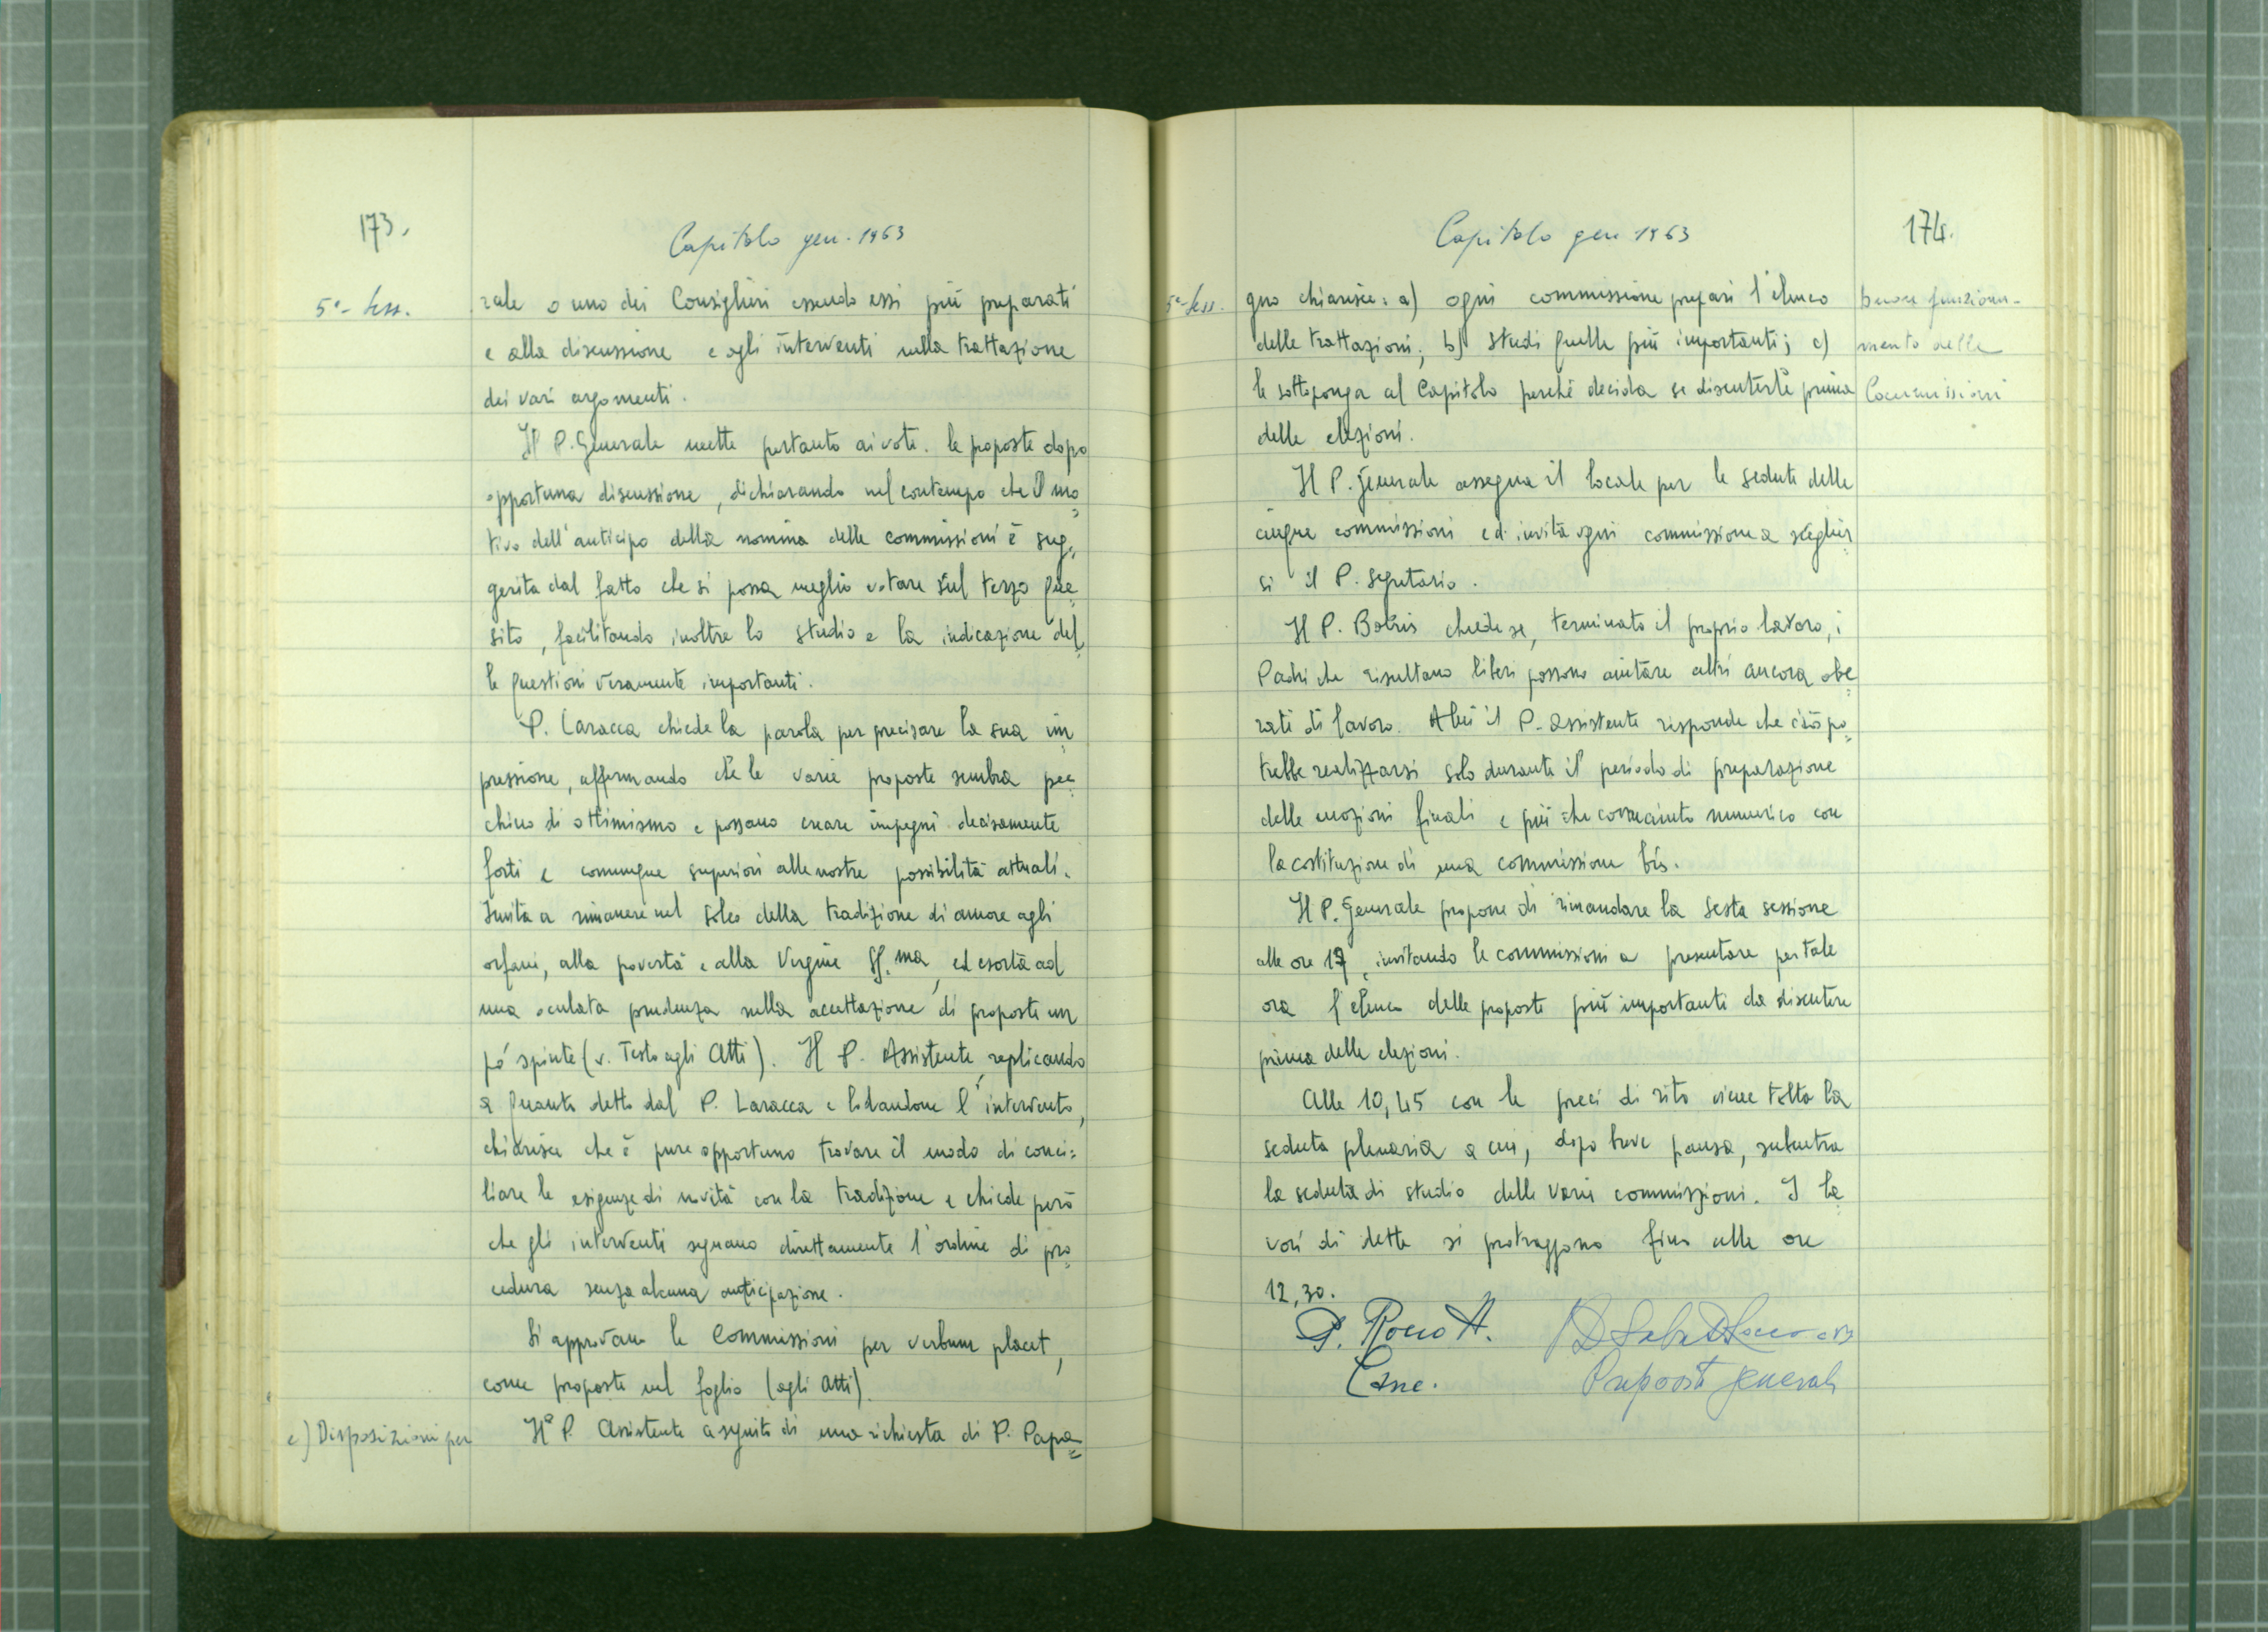 173.
Capitolo gen. 1963
5ª- sess.
rale o uno dei Consiglieri essendo essi più preparati
e alla discussione e agli interventi nella trattazione
dei vari argomenti.
Il P. Generale mette pertanto ai voti. le proposte dopo
opportuna discussione, dichiarando nel contempo che il mo=
tivo dell'anticipo della nomina delle commissioni è sug=
gerita dal fatto che si possa meglio votare sul terzo que=
sito, facilitando inoltre lo studio e la indicazione del=
le questioni veramente importanti.
P. Laracca chiede la parola per precisare la sua im=
pressione, affermando che le varie proposte sembra pec=
chino di ottimismo e possano creare impegni decisamente
forti e comunque superiori alle nostre possibilità attuali.
Invita a rimanere nel solco della tradizione di amore agli
orfani, alla povertà e alla Vergine SS.ma, ed esorta ad
una oculata prudenza nella accettazione di proposte un
po' spinte (v. Testo agli Atti). Il P. Assistente, replicando
a quanto detto dal P. Laracca e lodandone l'intervento,
chiarisce che è pure opportuno trovare il modo di conci=
liare le esigenze di novità con la tradizione e chiede però
che gli interventi seguano direttamente l'ordine di pro=
cedura senza alcuna anticipazione.
Si approvano le Commissioni per verbum placet,
come proposte nel foglio (agli Atti).
e) Disposizioni per
Il P. Assistente a seguito di una richiesta di P. Papa=
174.
Capitolo gen 1963
5ª- sess.
gno chiarisce: a) ogni commissione prepari l'elenco
delle trattazioni; b) studi quelle più importanti; c)
le sottoponga al Capitolo perché decida se discuterle prima
delle elezioni.
buon funziona-
mento delle
Commissioni
Il P. Generale assegna il locale per le sedute delle
cinque commissioni ed invita ogni commissione a sceglier=
si il P. Segretario.
Il P. chiede se, terminato il proprio lavoro, i
Padri che risultano liberi possono aiutare altri ancora obe=
rati di lavoro. Al il P. Assistente risponde che ciò po=
trebbe realizzarsi solo durante il periodo di preparazione
delle mozioni finali e più che numerico con
la costituzione di una commissione bis.
Il P. Generale propone di rimandare la Sesta sessione
alle ore 17, invitando le commissioni a presentare per tale
ora l'elenco delle proposte più importanti da discutere
prima delle elezioni.
Alle 10,45 con le preci di rito viene tolta la
seduta plenaria a cui, dopo breve pausa, subentra
la seduta di studio delle varie commissioni. I la=
vori di dette si protraggono fino alle ore
12,30.
P. Rocco A.
Canc.
Preposito generale